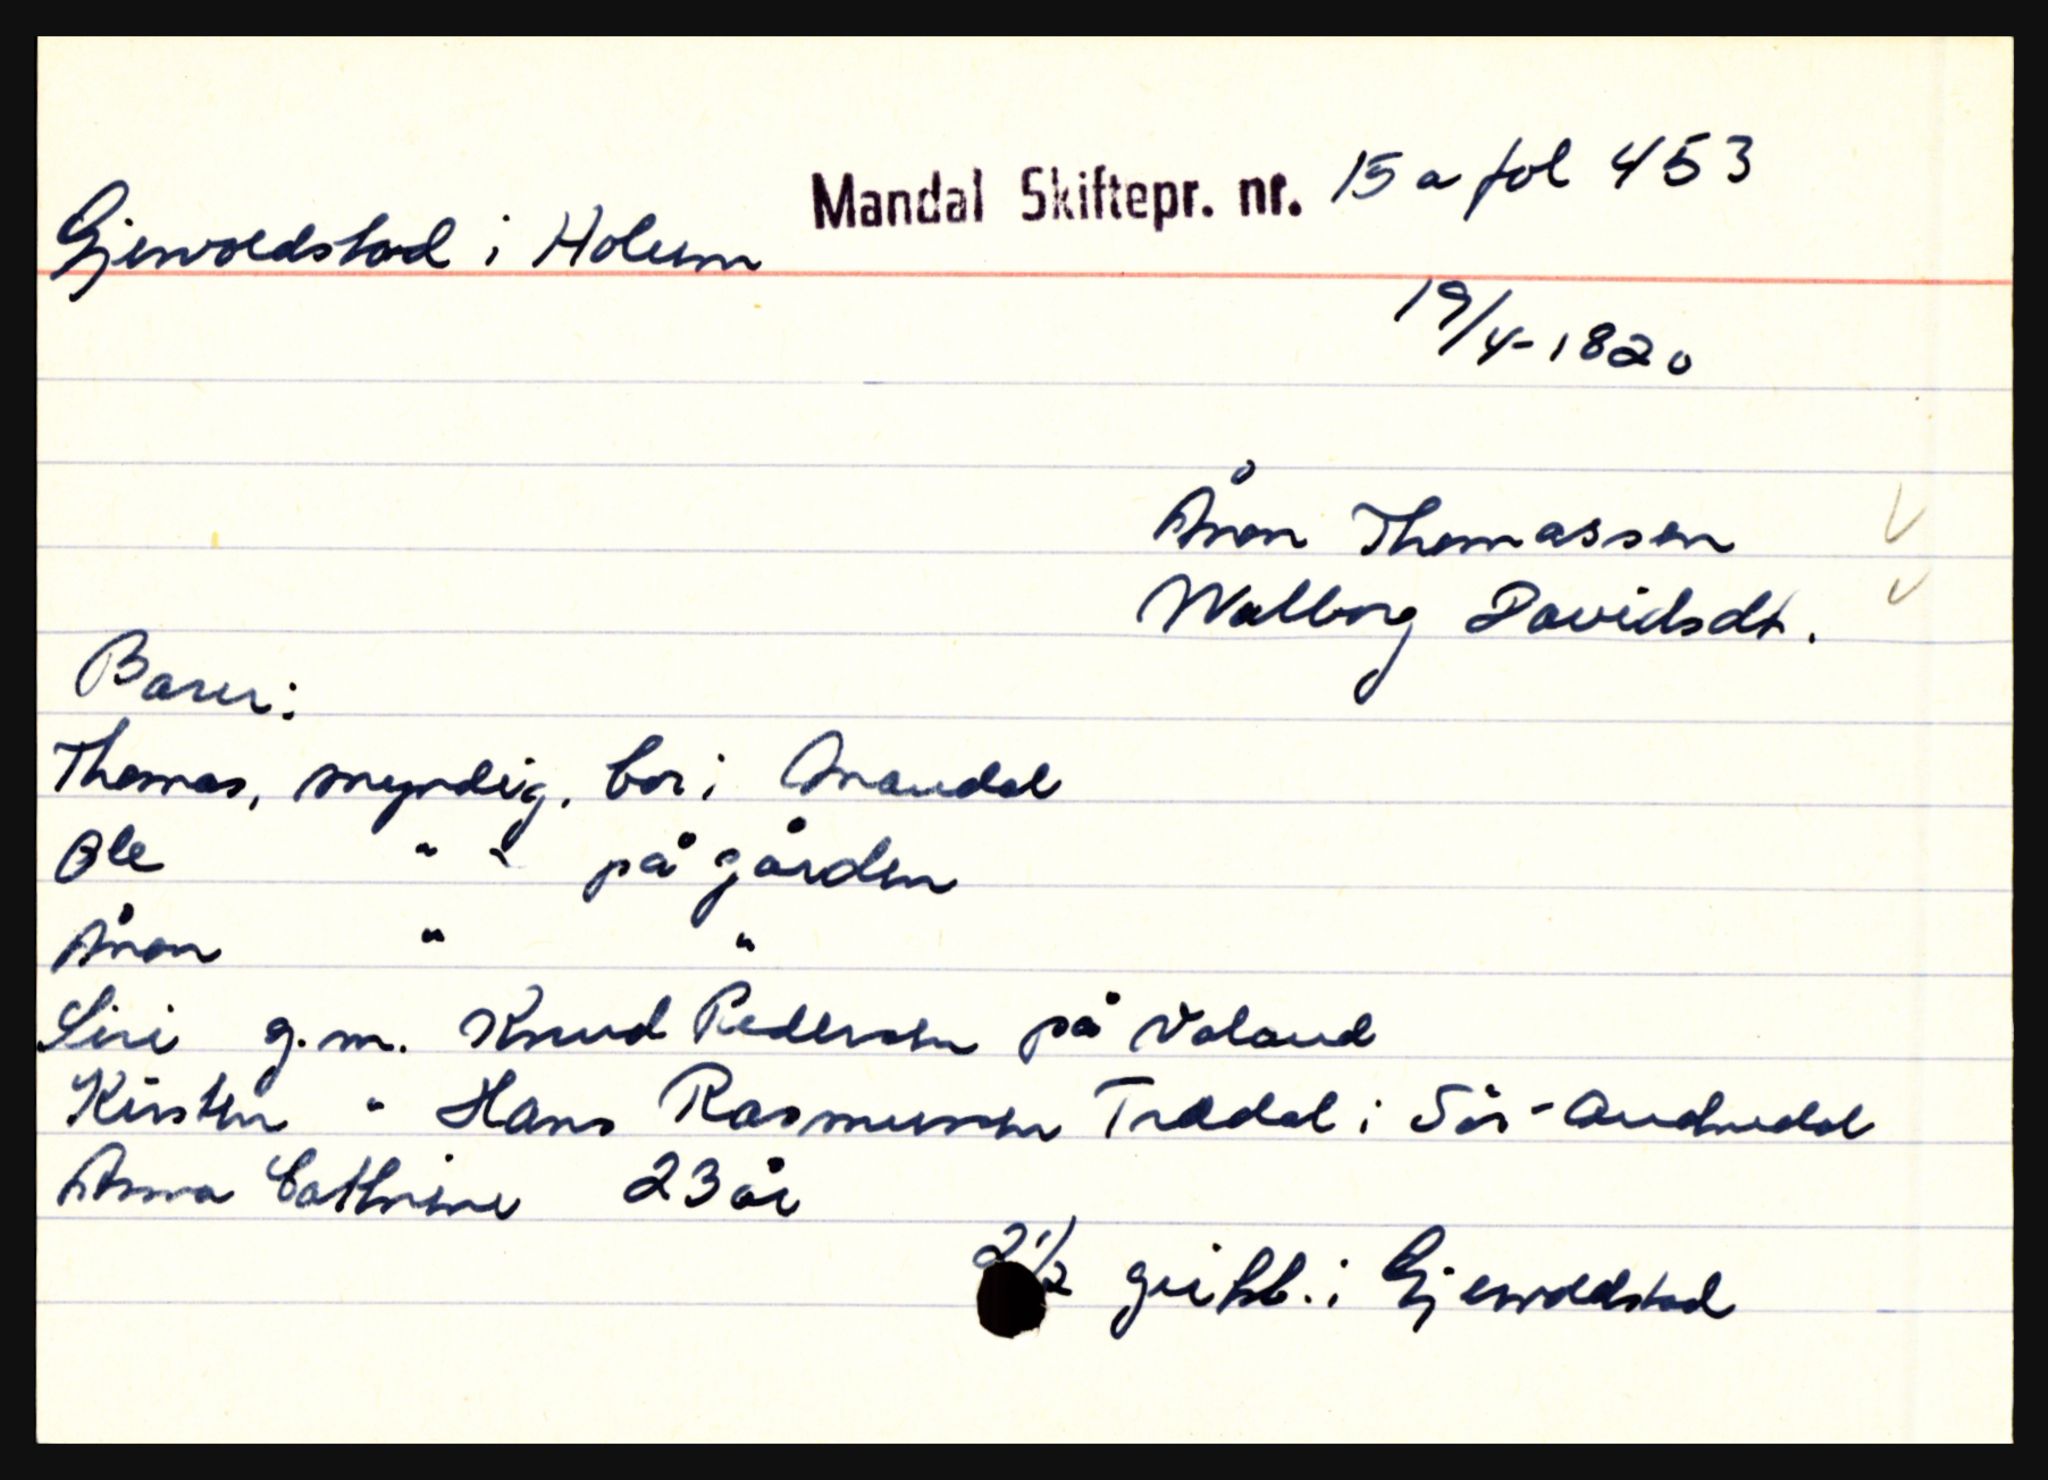 Mandal Skiftepr. nr. 15 a fol 453
Gjervoldstad i Holum
19/4-1820
Ånon Thomassen
Walborg Davidsdt.
Barn:
Thomas, myndig, bor i Mandal
Ole " " på gården
Ånon " "
Siri g.m. Knud Pedersen på Valand
Kirsten " Hans Rasmussen Trædal i Sør-Audnedal
Anna Cathrine 23 år
2 1/2 i Gjervoldstad